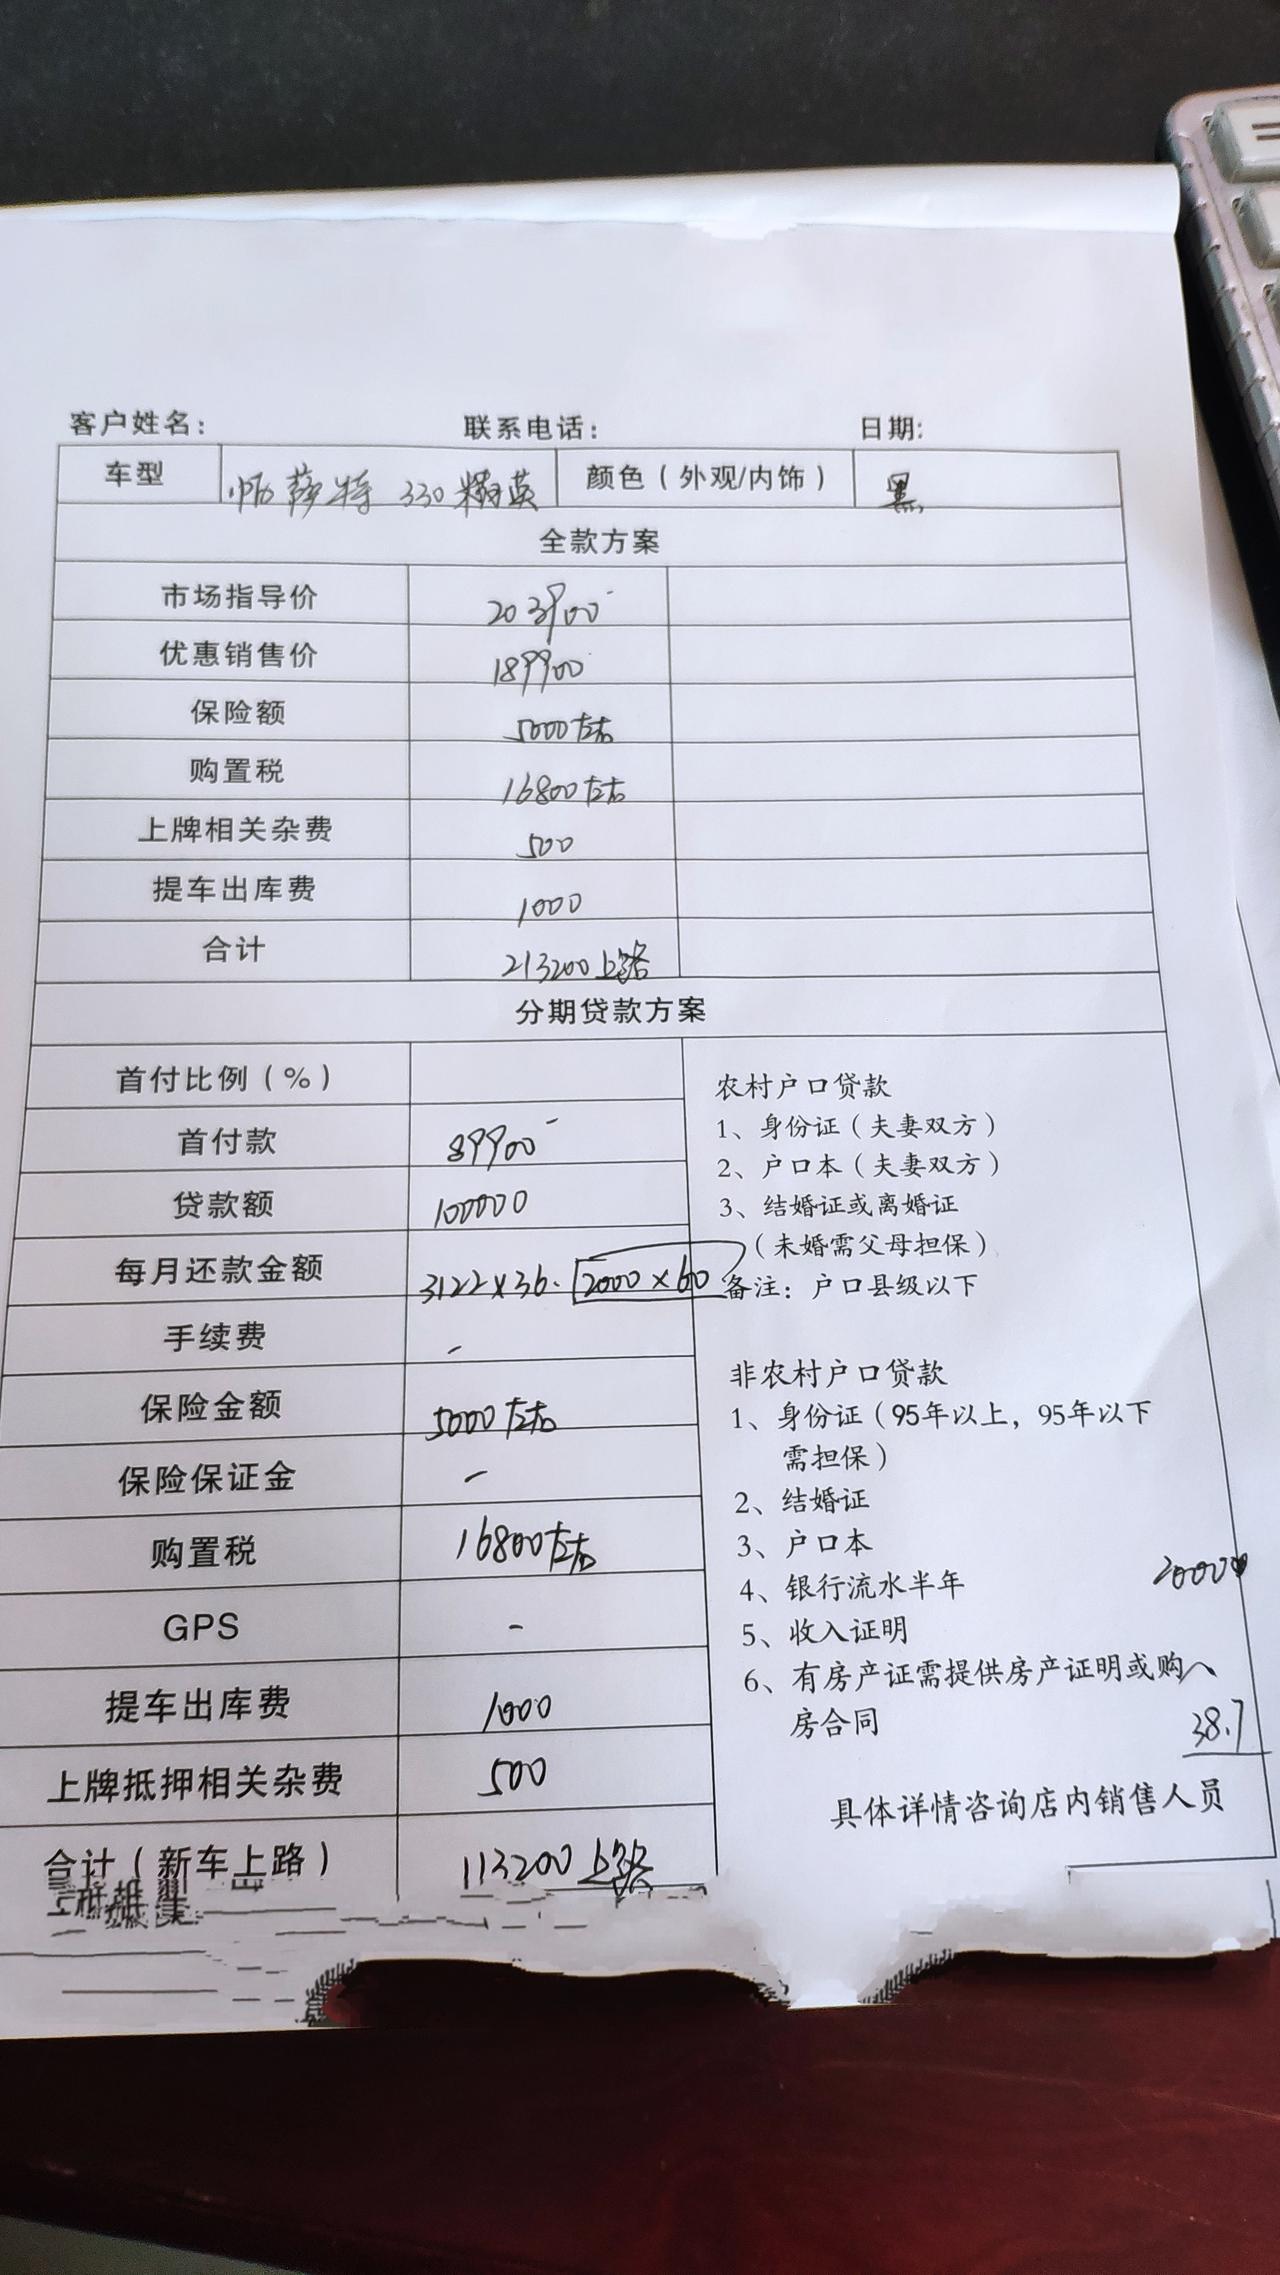 客户姓名： 联系电话： 日期:
车型 帕萨特 330 精英 颜色（外观/内饰） 黑
全款方案
市场指导价 203900
优惠销售价 189900
保险额 5000左右
购置税 16800左右
上牌相关杂费 500
提车出库费 1000
合计 213200上路
分期贷款方案
首付比例（%）
首付款 89900
贷款额 100000
每月还款金额 3122×36. 2000×60
手续费 -
保险金额 5000左右
保险保证金 -
购置税 16800左右
GPS -
提车出库费 1000
上牌抵押相关杂费 500
合计（新车上路） 113200上路
农村户口贷款
1、身份证（夫妻双方）
2、户口本（夫妻双方）
3、结婚证或离婚证
（未婚需父母担保）
备注：户口县级以下
非农村户口贷款
1、身份证（95年以上，95年以下
需担保）
2、结婚证
3、户口本
4、银行流水半年
5、收入证明
6、有房产证需提供房产证明或购
房合同
38.7
具体详情咨询店内销售人员